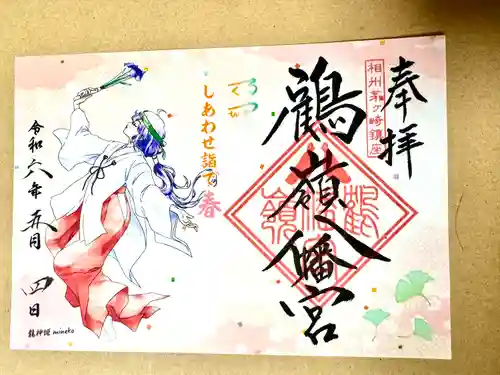 奉拝
相州茅ヶ崎鎮座
鶴嶺八幡宮
しあわせ詣で
春
令和六年五月四日
龍神姫 mineko